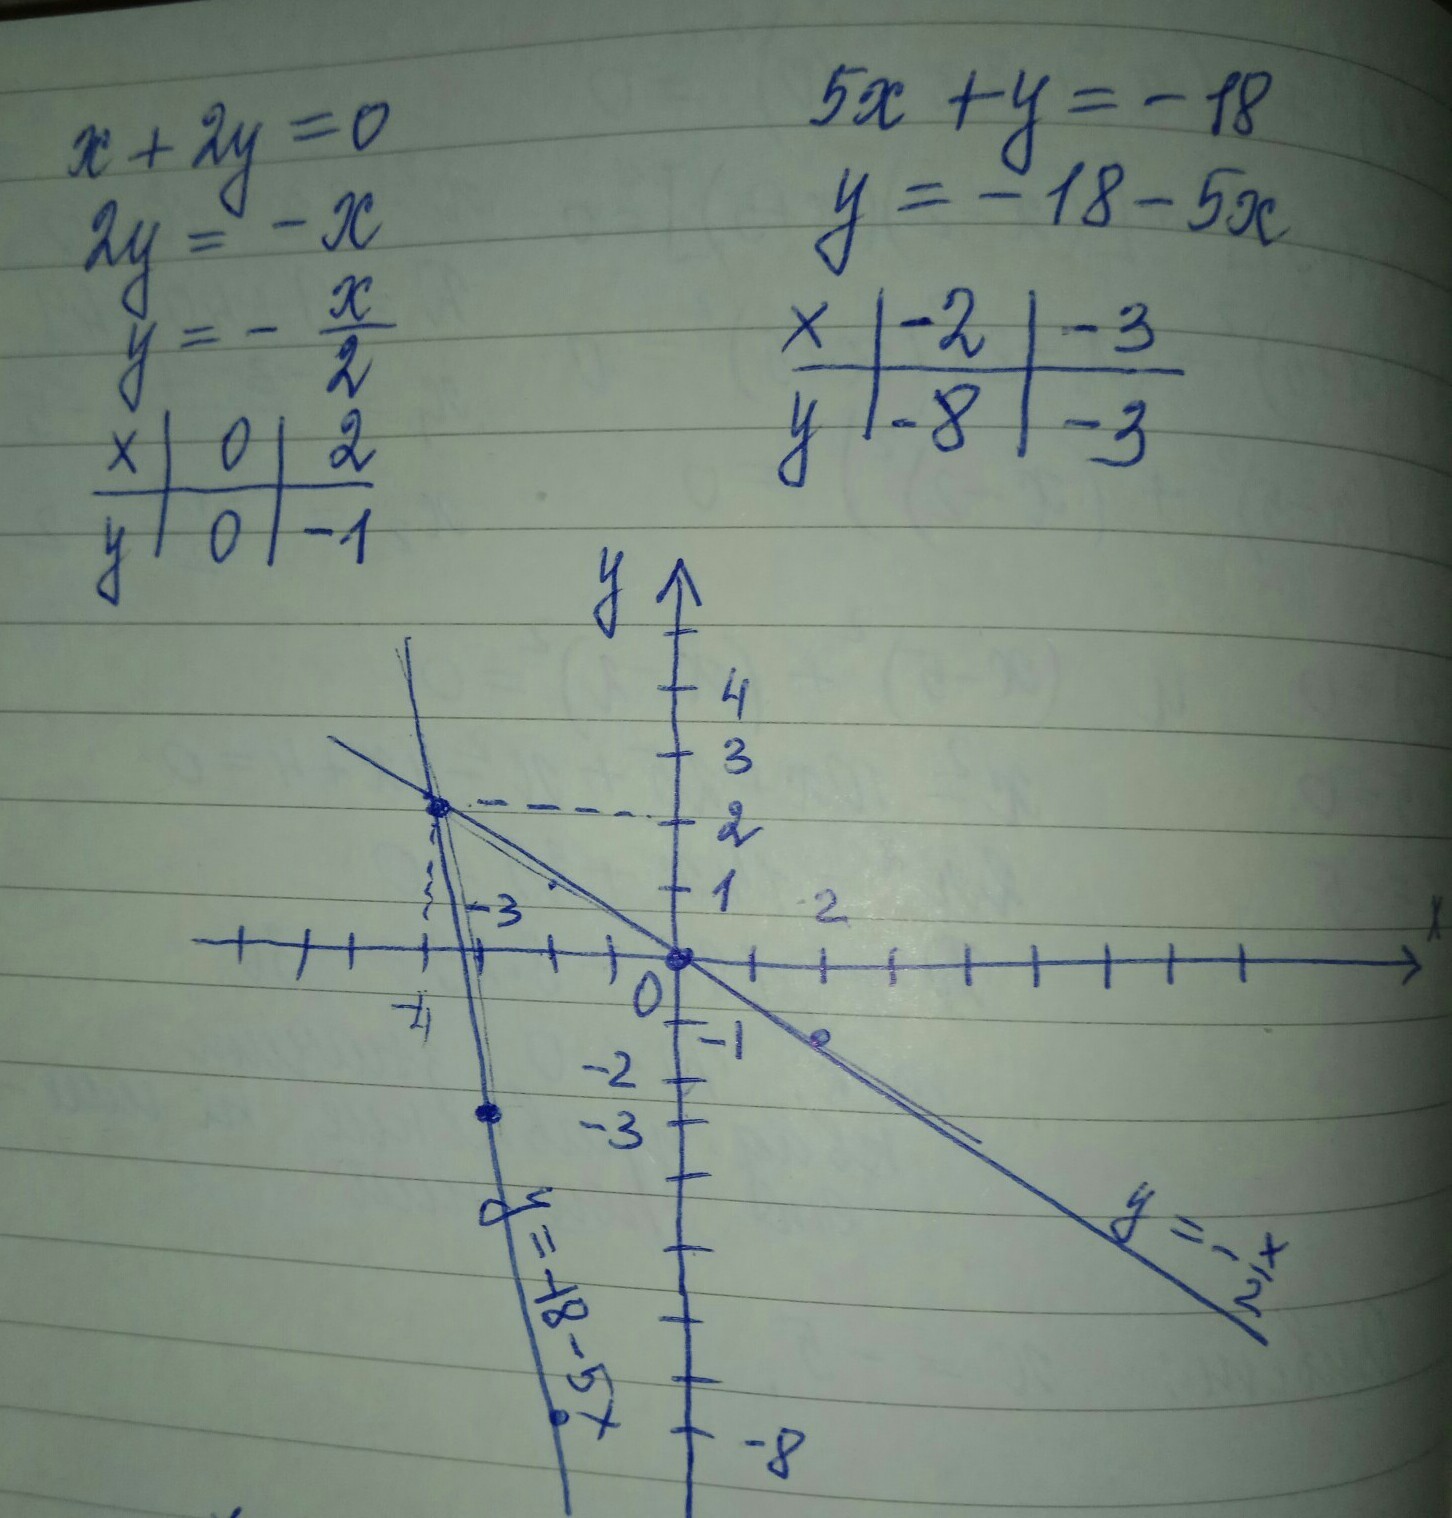 x + 2y = 0
2y = - x
y = - x/2
x | 0 | 2
y | 0 | -1
5x + y = - 18
y = - 18 - 5x
x | -2 | -3
y | -8 | -3
y
4
3
2
1
-3
2
x
-4
0
-1
-2
-3
y = -18 - 5x
y = - x/2
-8